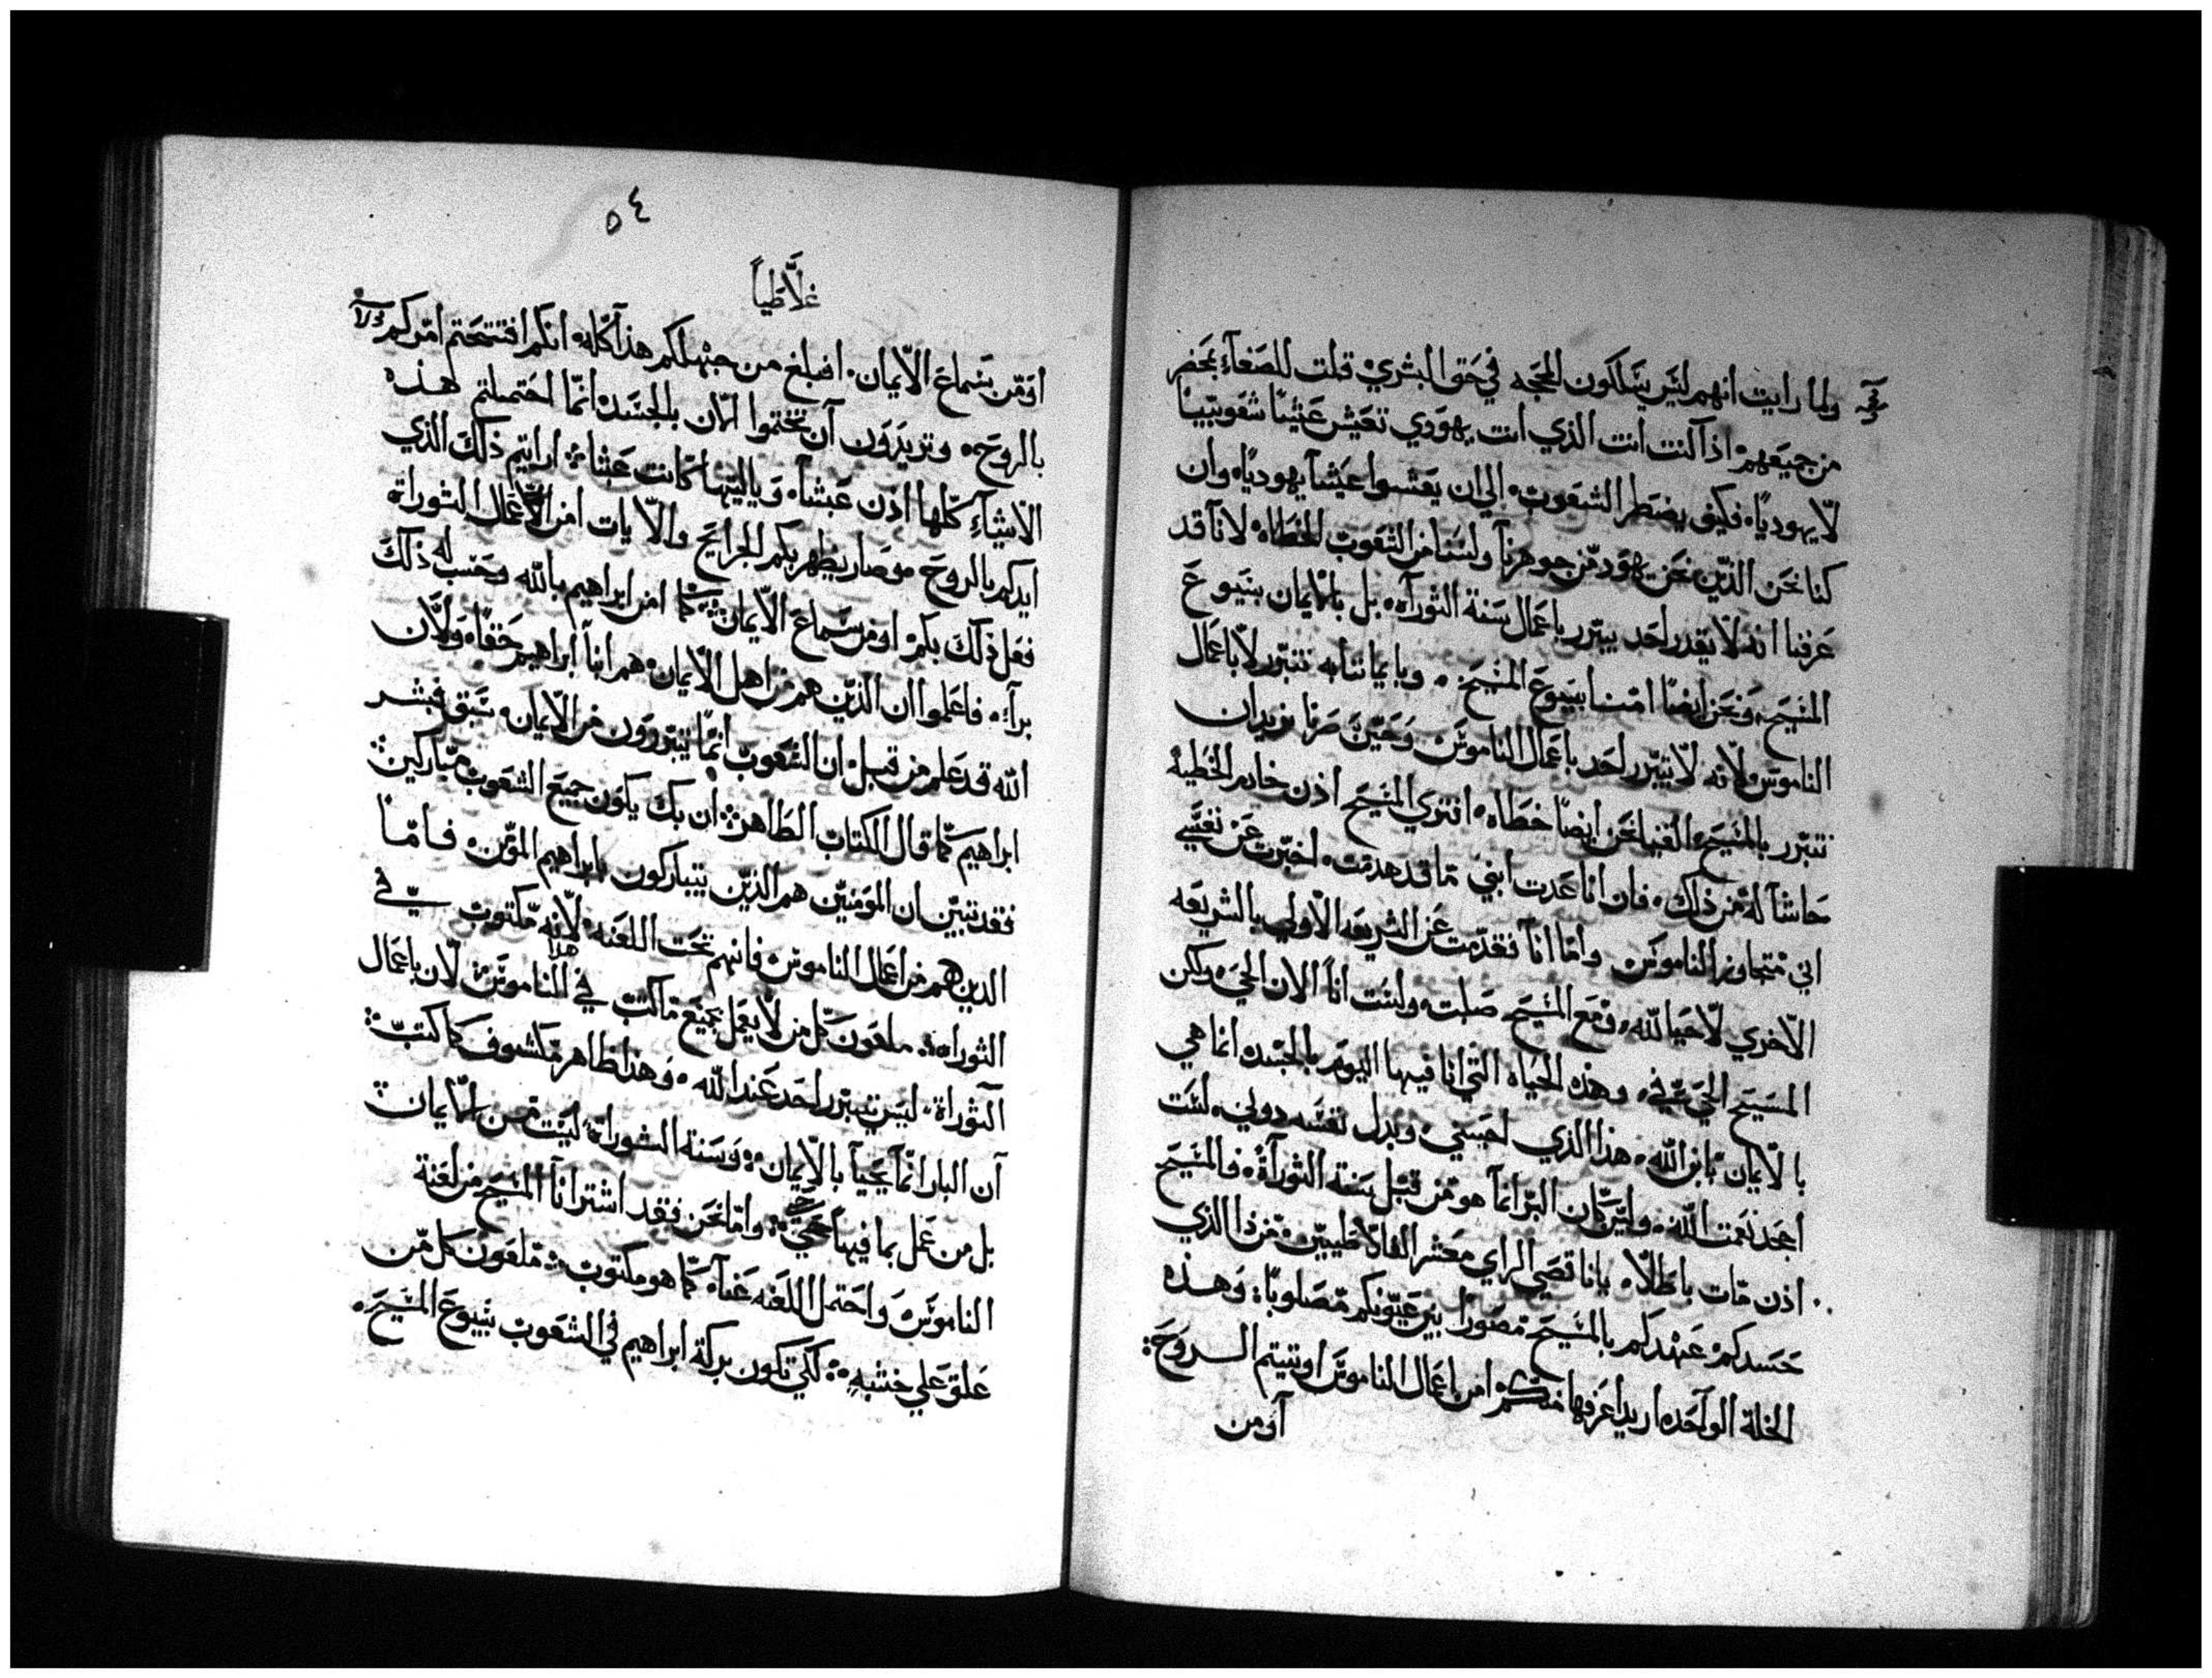 ولما رايت انهم ليس يسلكون المحجه في حق البشري قلت للصفاء بمحضر
من جميعهم اذا كنت انت الذي انت يهودي تعيش عيشا شعوبيا
لا يهوديا فكيف يضطر الشعوب الي ان يعيشوا عيشا يهوديا وان
كنا نحن الذين نحن يهود من جوهرنا ولسنا من الشعوب الخطاه لانا قد
عرفنا انه لا يقدر احد يبترر باعمال سنة التوراه بل بالايمان بيسوع
المسيح ونحن ايضا امنا بيسوع المسيح وبايماننا به نتبرر لا باعمال
الناموس ولانه لا يتبرر احد باعمال الناموس وحين صرنا نريد ان
نتبرر بالمسيح الفينا نحن ايضا خطاه افتري المسيح اذن خادم الخطيه
حاشا له من ذلك فان انا عدت ابني ما قد هدمت اخبرت عن نفسي
اني متجاوز الناموس واما انا فقد مت عن الشريعه الاولي بالشريعه
الاخري لاحيا لله ومع المسيح صلبت ولست انا الان الحي ولكن
المسيح الحي في وهذه الحياه التي انا فيها اليوم بالجسد انما هي
بالايمان بابن الله هذا الذي احبني وبدل نفسه دوني لست
اجحد نعمت الله ولين كان البر انما هو من قبل سنة التوراة فالمسيح
اذن مات باطلا يا ناقصي الراي معشر الغلاطيين من ذا الذي
حسدكم عهدكم بالمسيح مصورا بين عيونكم مصلوبا وهذه
الخلة الواحده اريد اعرفها منكم امن اعمال الناموس اوتيتم الروح
اومن
٥٤
غلاطيا
اومن سماع الايمان افبلغ من جهلكم هذا كله انكم افتتحتم امركم اولا
بالروح وتريدون ان تختموا الان بالجسد انما احتملتم هذه
الاشياء كلها اذن عبثا وياليتها كانت عبثا ارايتم ذلك الذي
ايدكم بالروح وصار يظهر بكم الجرايح والايات امن اعمال التوراة
فعل ذلك بكم او من سماع الايمان كما امن ابراهيم بالله وحسب له ذلك
برا فاعلموا ان الذين هم من اهل الايمان هم ابنا ابراهيم حقا ولان
الله قد علم من قبل ان الشعوب انما يتبررون من الايمان سبق فبشر
ابراهيم كما قال الكتاب الطاهر ان بك يكون جميع الشعوب مباركين
فقد تبين ان المومنين هم الذين يتباركون بابراهيم المومن فاما
الدين هم من اعمال الناموس فانهم تحت اللعنه لانه مكتوب في
التوراه ملعون كل من لا يعمل بجميع ما كتب في هذا الناموس لان باعمال
التوراة ليس يتبرر احد عند الله وهذا ظاهر مكشوف كما كتب
ان البار انما يحيا بالايمان وسنة التوراة ليست من الايمان
بل من عمل بما فيها حيي واما نحن فقد اشترانا المسيح من لعنة
الناموس واحتمل اللعنه عنا كما هو مكتوب ملعون كل من
علق علي خشبه لكي تكون بركة ابراهيم في الشعوب بيسوع المسيح